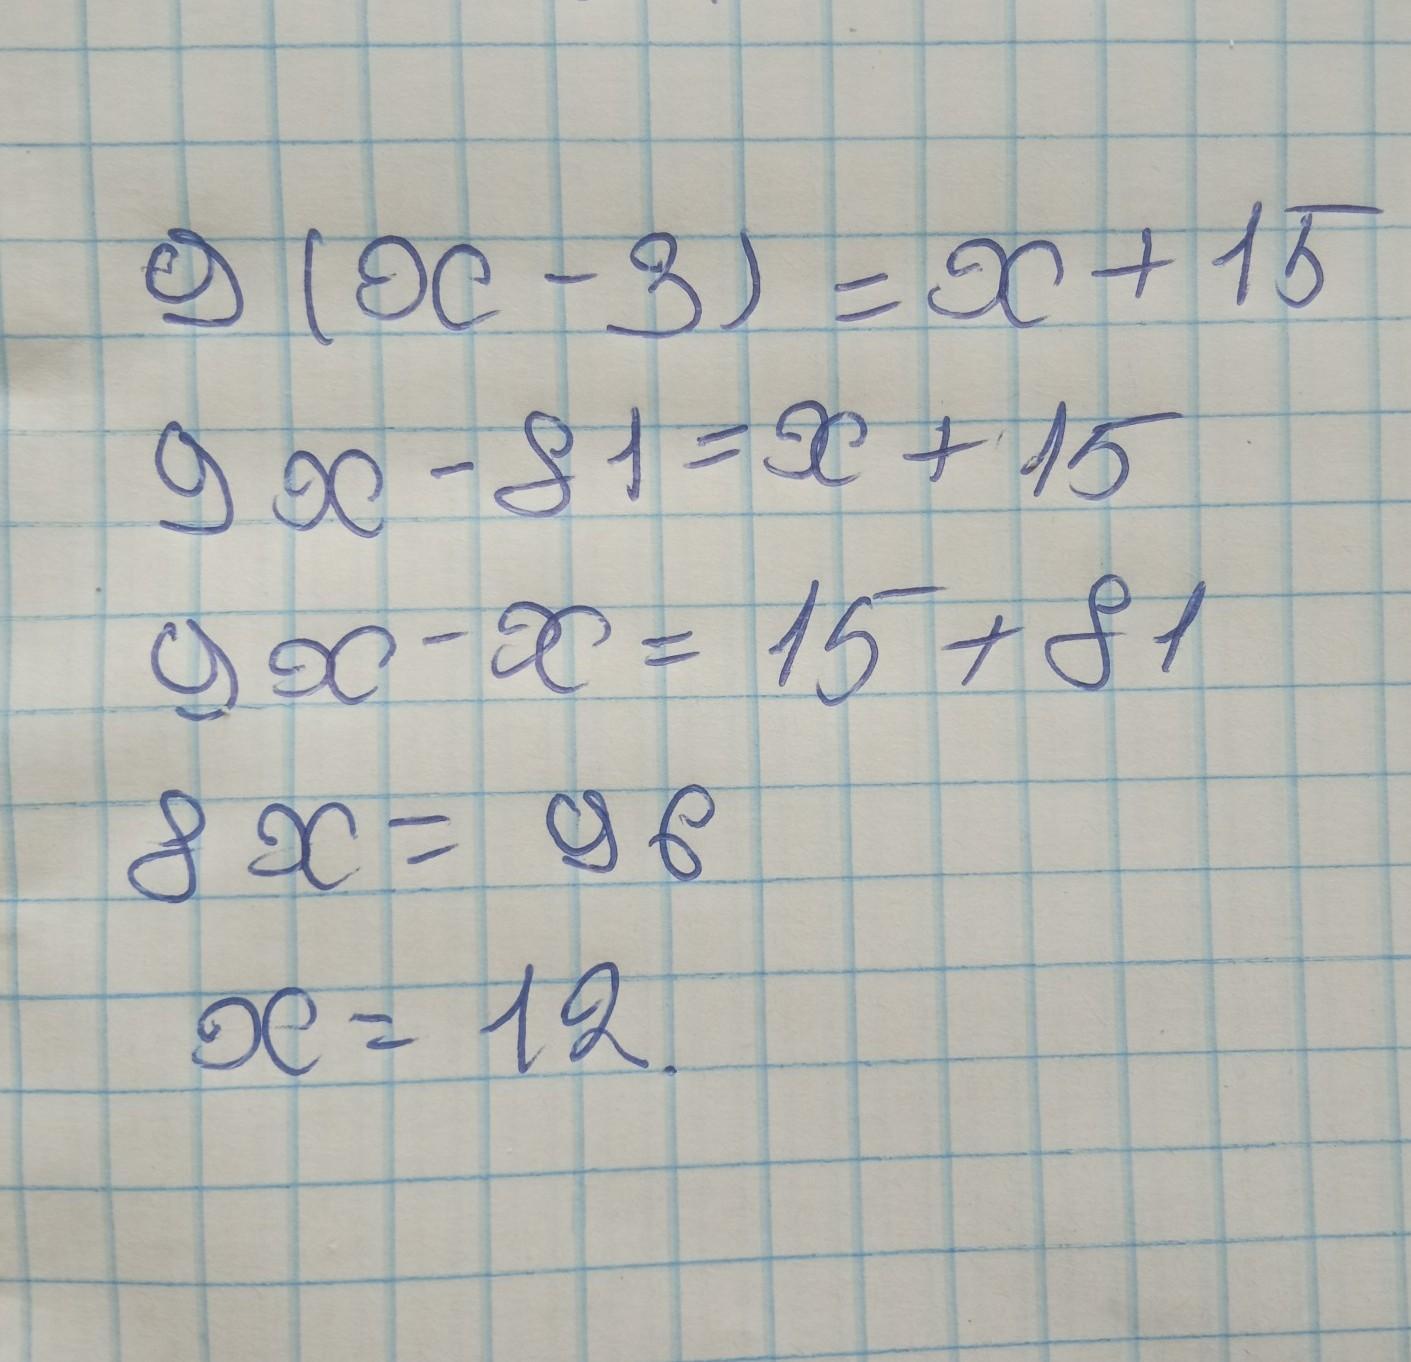 9(x-3)=x+15
9x-81=x+15
9x-x=15+81
8x=96
x=12.